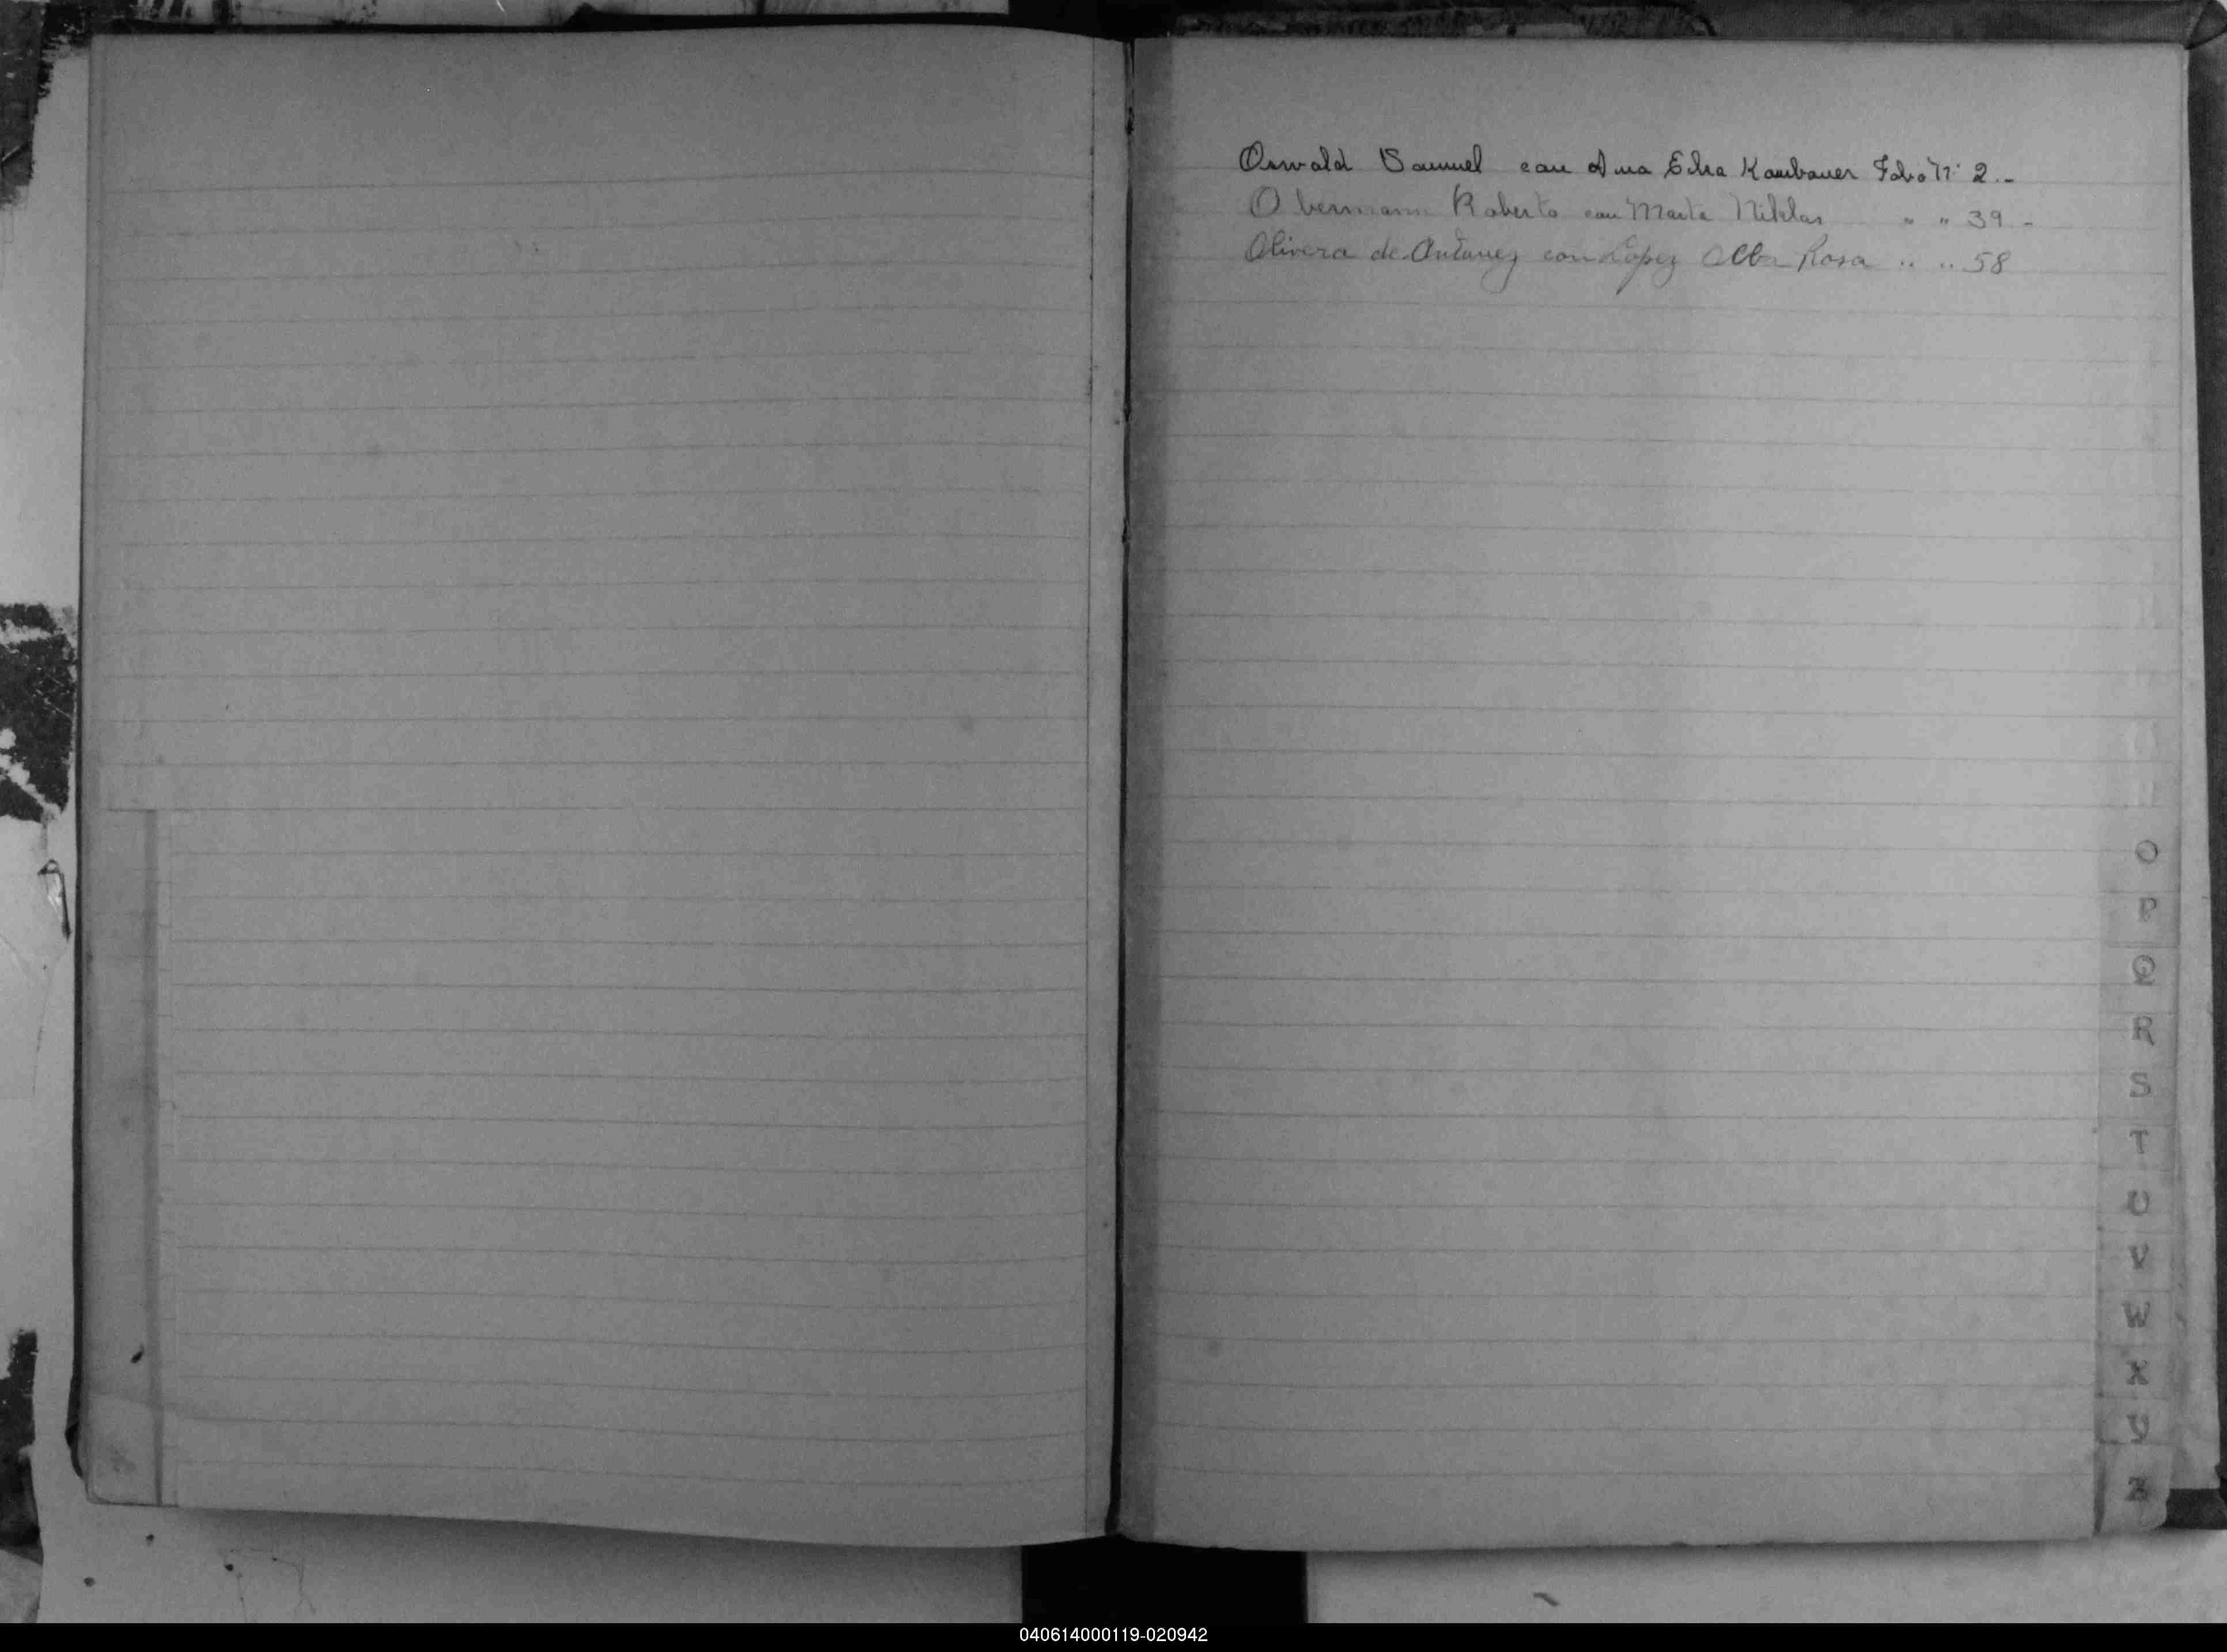 Oswald Samuel con Ana Elsa Kambauer Folio Nº 2.-
Obermann Roberto con Marta Niklas " " 39.-
Olivera de Antunez con Lopez Alba Rosa " " 58
O
P
Q
R
S
T
U
V
W
X
Y
Z
040614000119-020942